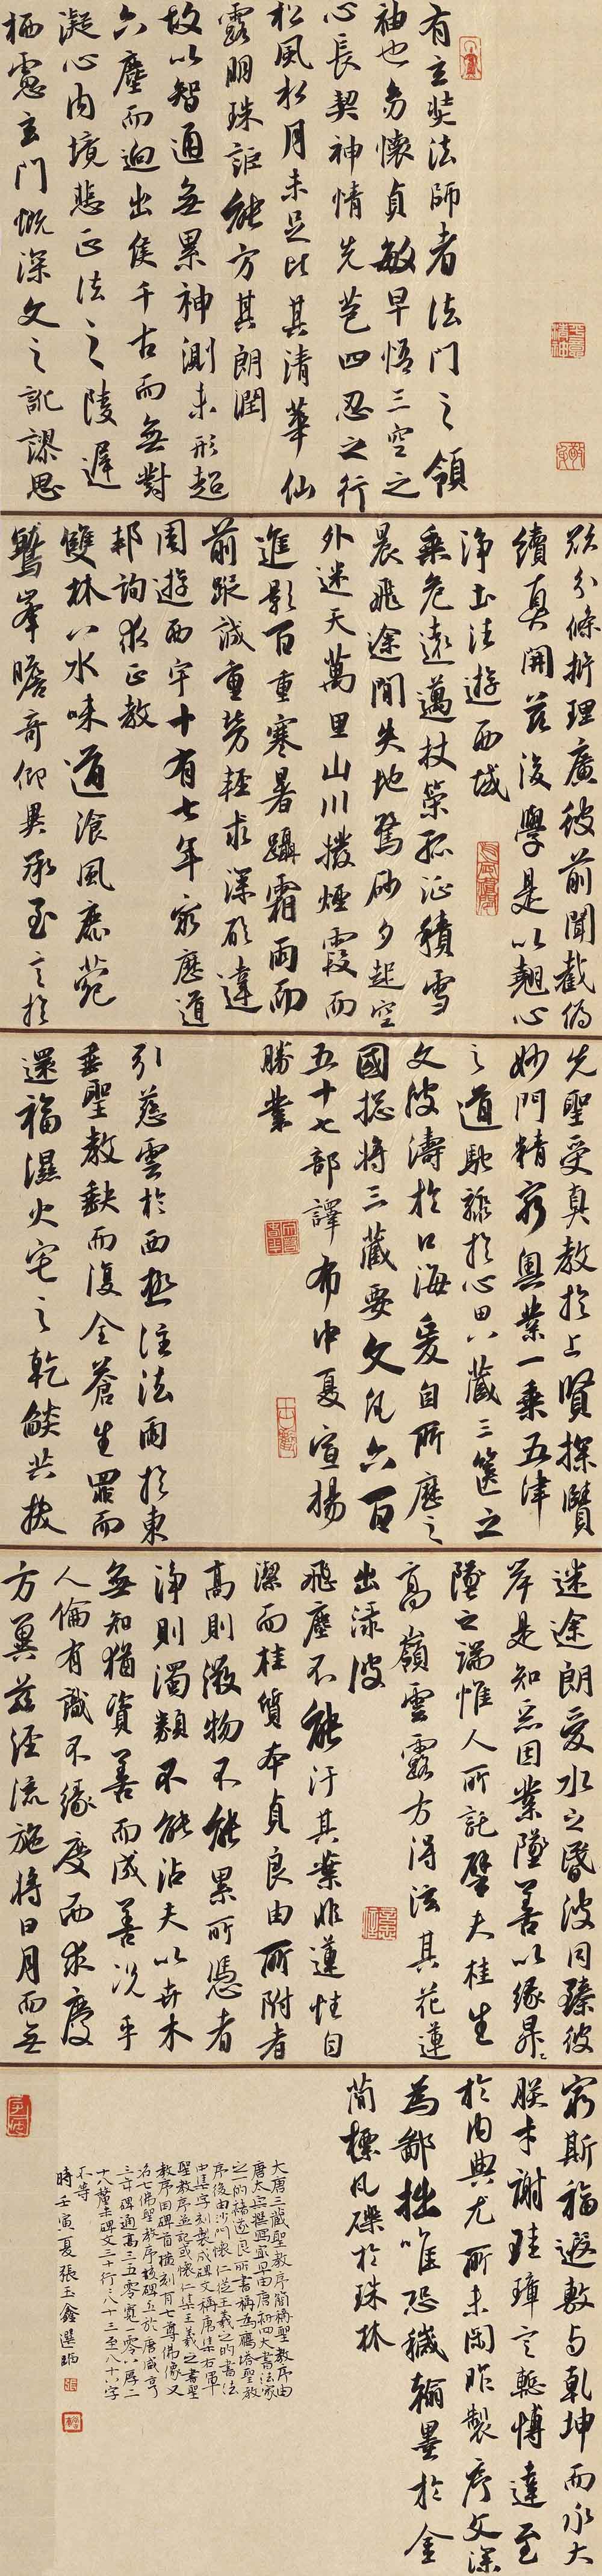 有玄奘法師者法門之領
袖也幼懷貞敏早悟三空之
心長契神情先苞四忍之行
松風水月未足比其清華仙
露明珠詎能方其朗潤
故以智通無累神測未形超
六塵而迥出隻千古而無對
凝心內境悲正法之陵遲
栖慮玄門慨深文之訛謬思
欲分條析理廣彼前聞截偽
續真開茲後學是以翹心
淨土法遊西域
乘危遠邁杖策孤征積雪
晨飛途間失地驚砂夕起空
外迷天萬里山川撥煙霞而
進影百重寒暑躡霜雨而
前蹤誠重勞輕求深願達
周遊西宇十有七年窮歷道
邦詢求正教
雙林八水味道飡風鹿菀
鷲峯瞻奇仰異承至言於
先聖受真教於上賢探賾
妙門精窮奧業一乘五律
之道馳驟於心田八藏三篋之
文波濤於口海爰自所歷之
國總將三藏要文凡六百
五十七部譯布中夏宣揚
勝業
引慈雲於西極注法雨於東
垂聖教缺而復全蒼生罪而
還福濕火宅之乾燄共拔
迷途朗愛水之昏波同臻彼
岸是知惡因業墜善以緣昇〻
墜之端惟人所託譬夫桂生
高嶺雲露方得泫其花蓮
出淥波
飛塵不能汙其葉非蓮性自
潔而桂質本貞良由所附者
高則微物不能累所憑者
淨則濁類不能沾夫以卉木
無知猶資善而成善況乎
人倫有識不緣慶而求慶
方冀茲經流施將日月而無
窮斯福遐敷與乾坤而永大
朕才謝珪璋言慙博達至
於內典尤所未閑昨製序文深
為鄙拙唯恐穢翰墨於金
簡標凡礫於珠林
大唐三藏聖教序簡稱聖教序由
唐太宗撰寫最早由唐初四大書法家
之一的褚遂良所書稱為雁塔聖教
序後由沙門懷仁從王羲之的書法
中集字刻製成碑文稱唐集右軍
聖教序並記或懷仁集王羲之書聖
教序因碑首橫刻有七尊佛像又
名七佛聖教序該碑立於唐咸亨
三年碑通高三五零寬一零八厚二
十八釐米碑文三十行八十三至八十八字
不等
時壬寅夏張玉鑫選抄